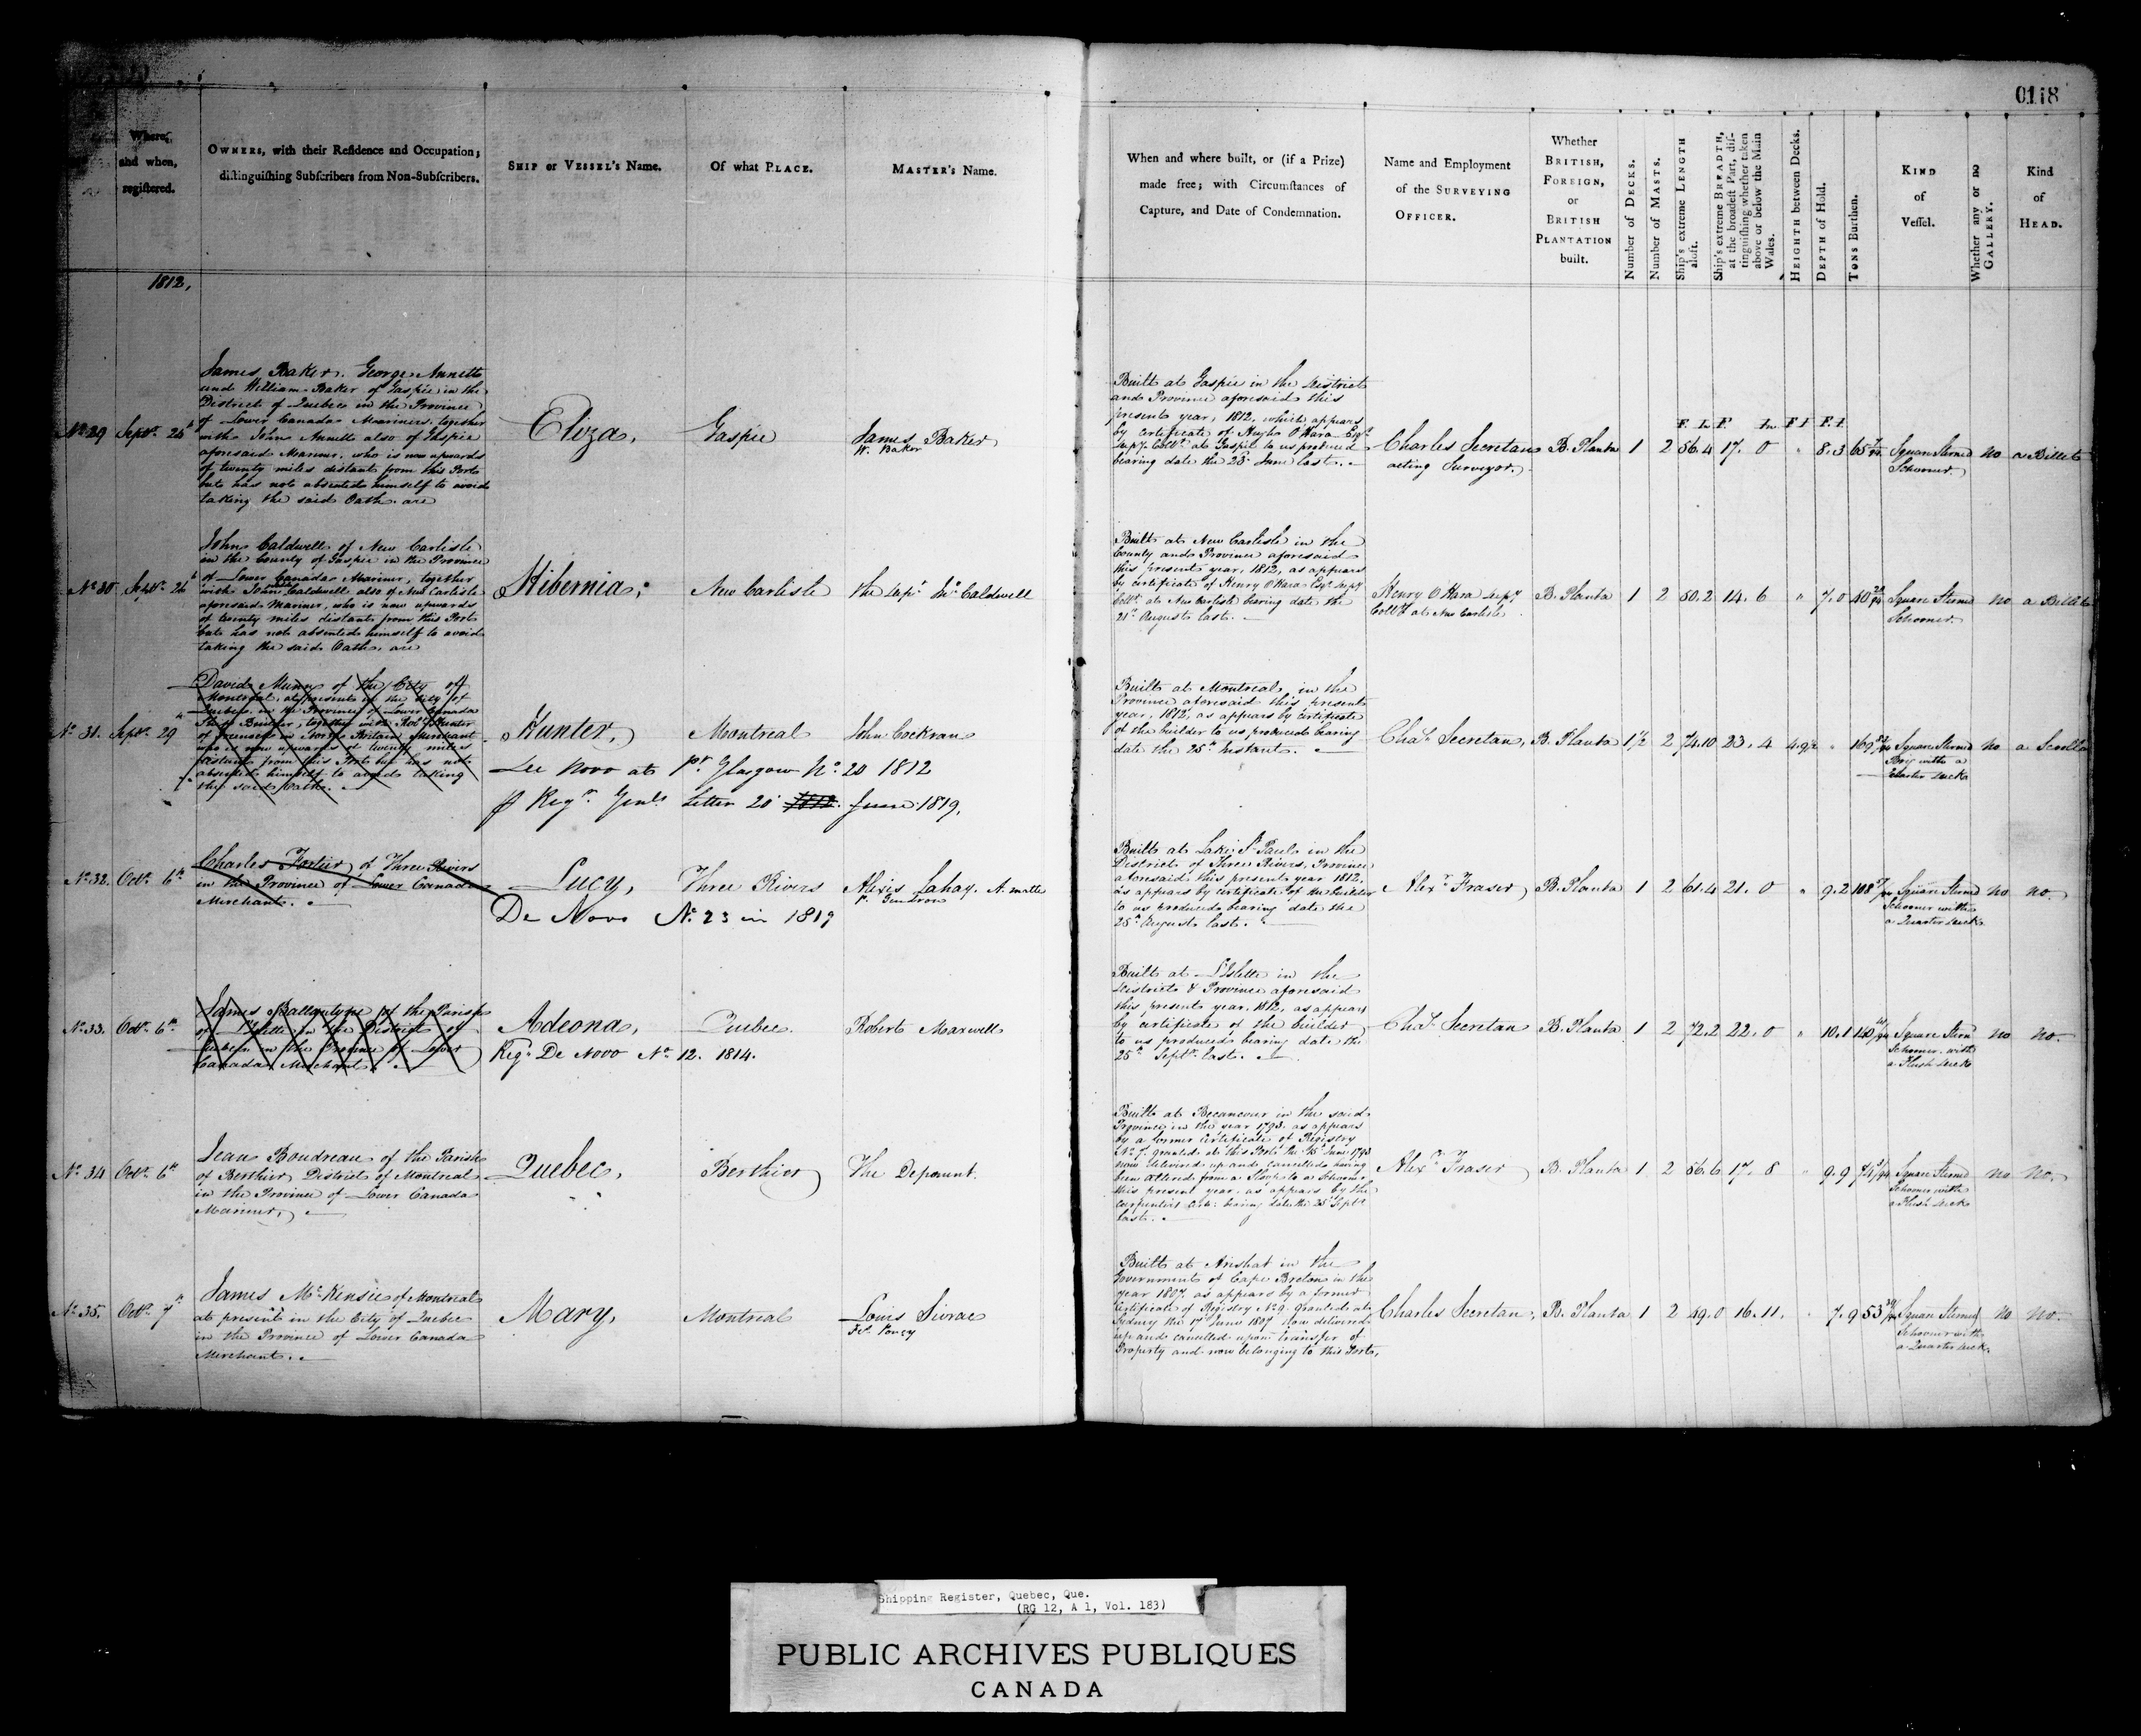 0118
Where, and when, registered.
OWNERS, with their Residence and Occupation;
distinguishing Subscribers from Non-Subscribers.
SHIP or VESSEL's Name.
Of what PLACE.
MASTER's Name.
When and where built, or (if a Prize)
made free; with Circumstances of
Capture, and Date of Condemnation.
Name and Employment
of the SURVEYING
OFFICER.
Whether
BRITISH,
FOREIGN,
or
BRITISH
PLANTATION
built.
Number of DECKS.
Number of MASTS.
Ship's extreme LENGTH
aloft.
Ship's extreme BREADTH,
at the broadest Part, dis-
tinguishing whether taken
above or below the Main
Wales.
HEIGHTH between Decks.
DEPTH of Hold.
TONS Burthen.
KIND
of
Vessel.
Whether any or no
GALLERY.
Kind
of
HEAD.
1812,
No 29 Septr.
James Baker, George Annett
and William Baker of Gaspie in the
District of Quebec in the Province
of Lower Canada Mariners, together
with John Annett also of Gaspie
aforesaid Mariner, who is now upwards
of twenty miles distant from this Port
but has not absented himself to avoid
taking the said Oath are
Eliza,
Gaspie
James Baker
W. Baker
Built at Gaspie in the District
and Province aforesaid this
present year, 1812, which appears
by certificate of Hugh O'Hara Esqr
Depy Collr. at Gaspie to us produced
bearing date the 23d June last.
Charles Secretan
acting Surveyor.
B. Planta 1 2 56.4 17. 0 " 8.3 65 Square Sterned
Schooner.
no a Billet
No 30 Septr.
John Caldwell of New Carlisle
in the County of Gaspie in the Province
of Lower Canada Mariner, together
with John Caldwell also of New Carlisle
aforesaid Mariner, who is now upwards
of twenty miles distant from this Port
but has not absented himself to avoid
taking the said Oath, are
Hibernia,
New Carlisle
Caldwell
Built at New Carlisle in the
County and Province aforesaid
this present year, 1812, as appears
by certificate of Henry O'Hara Esqr Depy
Collr. at New Carlisle bearing date the
21st August last.
Henry O'Hara Depy
Collr at New Carlisle
B. Planta 1 2 50.2 14. 6 " 7.0 40 Square Sterned
Schooner.
no a Billet
No 31. Septr. 29th
David Munn of the City of
Montreal at present of the City of
Quebec in the Province of Lower Canada
Ship Builder, together with Robt Hunter
of Greenock in North Britain Merchant
who is now upwards of twenty miles
distant from this Port but has not
absented himself to avoid taking
the said Oath.
Hunter,
Montreal
John Cockran
De Novo at Pt. Glasgow No. 20 1812
p Regr. Genls Letter 20 1812 June 1819,
Built at Montreal, in the
Province aforesaid this present
year, 1812, as appears by certificate
of the builder to us produced bearing
date the 25th Instant.
Chas. Secretan, B. Planta 1½ 2 74.10 23. 4 " 169 Square Sterned
Brig with a
Quarter Deck
no a Scroll
No 32. Octr. 6th
Charles Fortier, of Three Rivers
in the Province of Lower Canada
Merchant.
Lucy,
Three Rivers
Alexis Lahay. A. matte
P. Gendron
De Novo No. 23 in 1819
Built at Lake St. Paul in the
District of Three Rivers, Province
aforesaid this present year 1812,
as appears by certificate of the builder
to us produced bearing date the
25th August last.
Alexr Fraser B. Planta 1 2 61.4 21. 0 " 9.2 108 Square Sterned
Schooner with
a Quarter Deck
no no.
No 33. Octr. 6th.
James Ballantyne of the Parish
of L'Islette in the District of
Quebec in the Province of Lower
Canada Merchant
Adeona,
Quebec
Robert Maxwell
Regd. De Novo No. 12. 1814.
Built at L'Islette in the
District & Province aforesaid
this present year, 1812, as appears
by certificate of the builder
to us produced bearing date the
25th Septr. last.
Chas. Secretan B. Planta 1 2 72.2 22. 0 " 10.1 Square Stern
Schooner, with
a Flush Deck
no no.
No 34 Octr. 6th
Jean Boudreau of the Parish
of Berthier, District of Montreal
in the Province of Lower Canada
Mariner,
Quebec,
Berthier
The Deponent.
Built at Becancour in the said
Province in the year 1793. as appears
by a former certificate of Registry
No. 7. granted at this Port the June 1793
now delivered up and cancelled having
been altered from a Sloop to a Schooner
this present year, as appears by the
carpenters cert. bearing date the 25 Septr
last.
Alexr Fraser B. Planta 1 2 56.6 17. 8 " 9.9 74 Square Sterned
Schooner with
a Flush Deck
no no.
No 35. Octr. 7th
James McKensie of Montreal
at present in the City of Quebec
in the Province of Lower Canada
Merchant.
Mary,
Montreal
Louis Sivrac
Built at Arishat in the
Government of Cape Breton in the
year 1807, as appears by a former
certificate of Registry No 9. granted at
Sydney the 17 June 1807 now delivered
up and cancelled upon transfer of
Property and now belonging to this Port,
Charles Secretan, B. Planta 1 2 59.0 16.11. 7.9 53 Square Sterned
Schooner with
a Quarter Deck.
no no.
Shipping Register, Quebec, Que.
(RG 12, A 1, Vol. 183)
PUBLIC ARCHIVES PUBLIQUES
CANADA